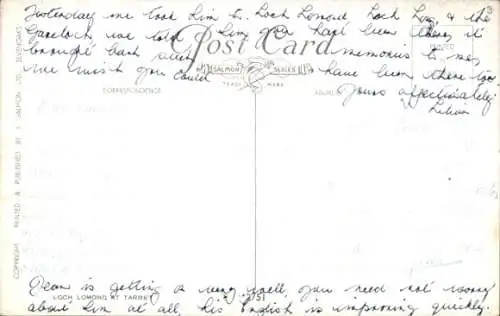 Yesterday we took him to Loch Lomond, Loch Long, & the
Gareloch we told him you had been there it
Post Card
brought back such memories to me,
we wish you could have been there too.
SALMON SERIES
TRADE MARK
CORRESPONDENCE
Yours affectionately,
Lilian
COPYRIGHT PRINTED & PUBLISHED BY J. SALMON LTD. SEVENOAKS
is getting on very well, you need not worry
LOCH LOMOND AT TARBET 3751
about him at all, his English is improving quickly.